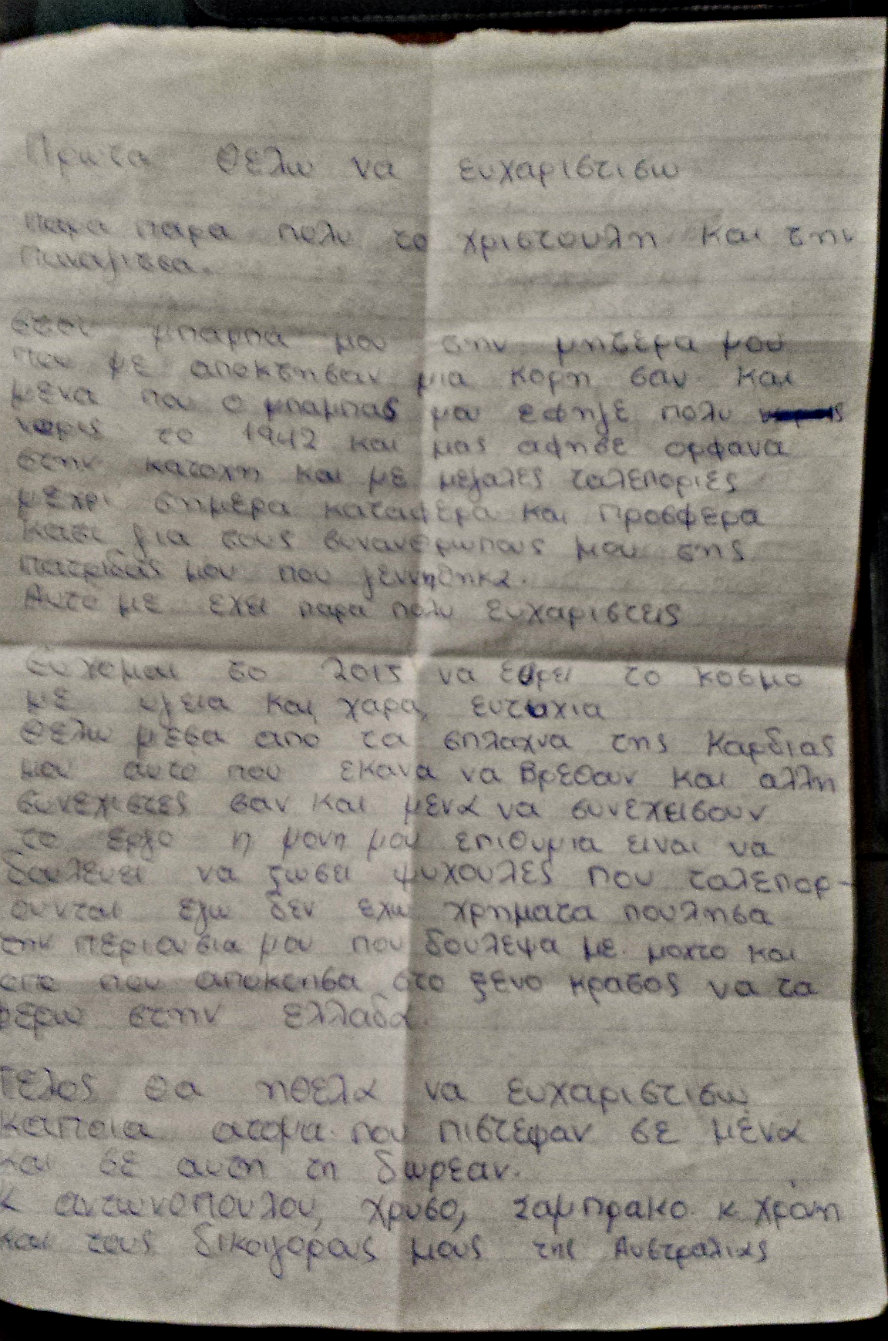 Πρωτα θελω να ευχαριστισω
παρα παρα πολυ το χριστουλη και την
Παναγιτσα.
στον μπαμπα μου στην μητερα μου
που με αποκτησαν μια κορη σαν και
μενα που ο μπαμπας μου εφηγε πολυ
νορις το 1942 και μας αφησε ορφανα
στην κατοχη και με μεγαλες ταλεποριες
μεχρι σημερα καταφερα και προσφερα
κατι για τους συνανθρωπους μου της
πατριδας μου που γεννηθηκα.
Αυτο με εχει παρα πολυ ευχαριστεις
Ευχομαι το 2015 να εβρει το κοσμο
με υγεια και χαρα, ευτυχια
Θελω μεσα απο τα σπλαχνα της καρδιας
μου αυτο που εκανα να βρεθουν και αλλη
συνεχιστες σαν και μενα να συνεχεισουν
το εργο η μονη μου επιθυμια ειναι να
δουλευει να ζωσει ψυχουλες που ταλεπορ-
ουνται εγω δεν εχω χρηματα πουλησα
την περιουσια μου που δουλεψα με μοχτο και
οτο που αποκτησα στο ξενο κρατος να τα
φερω στην ελλαδα.
Τελος θα ηθελα να ευχαριστισω
καποια ατομα που πιστεφαν σε μενα
και σε αυτη τη δωρεαν.
κ αντωνοπουλου, χρυσο, ζαμπρακο κ χρονη
και τους δικηγορους μους της Αυστραλιας